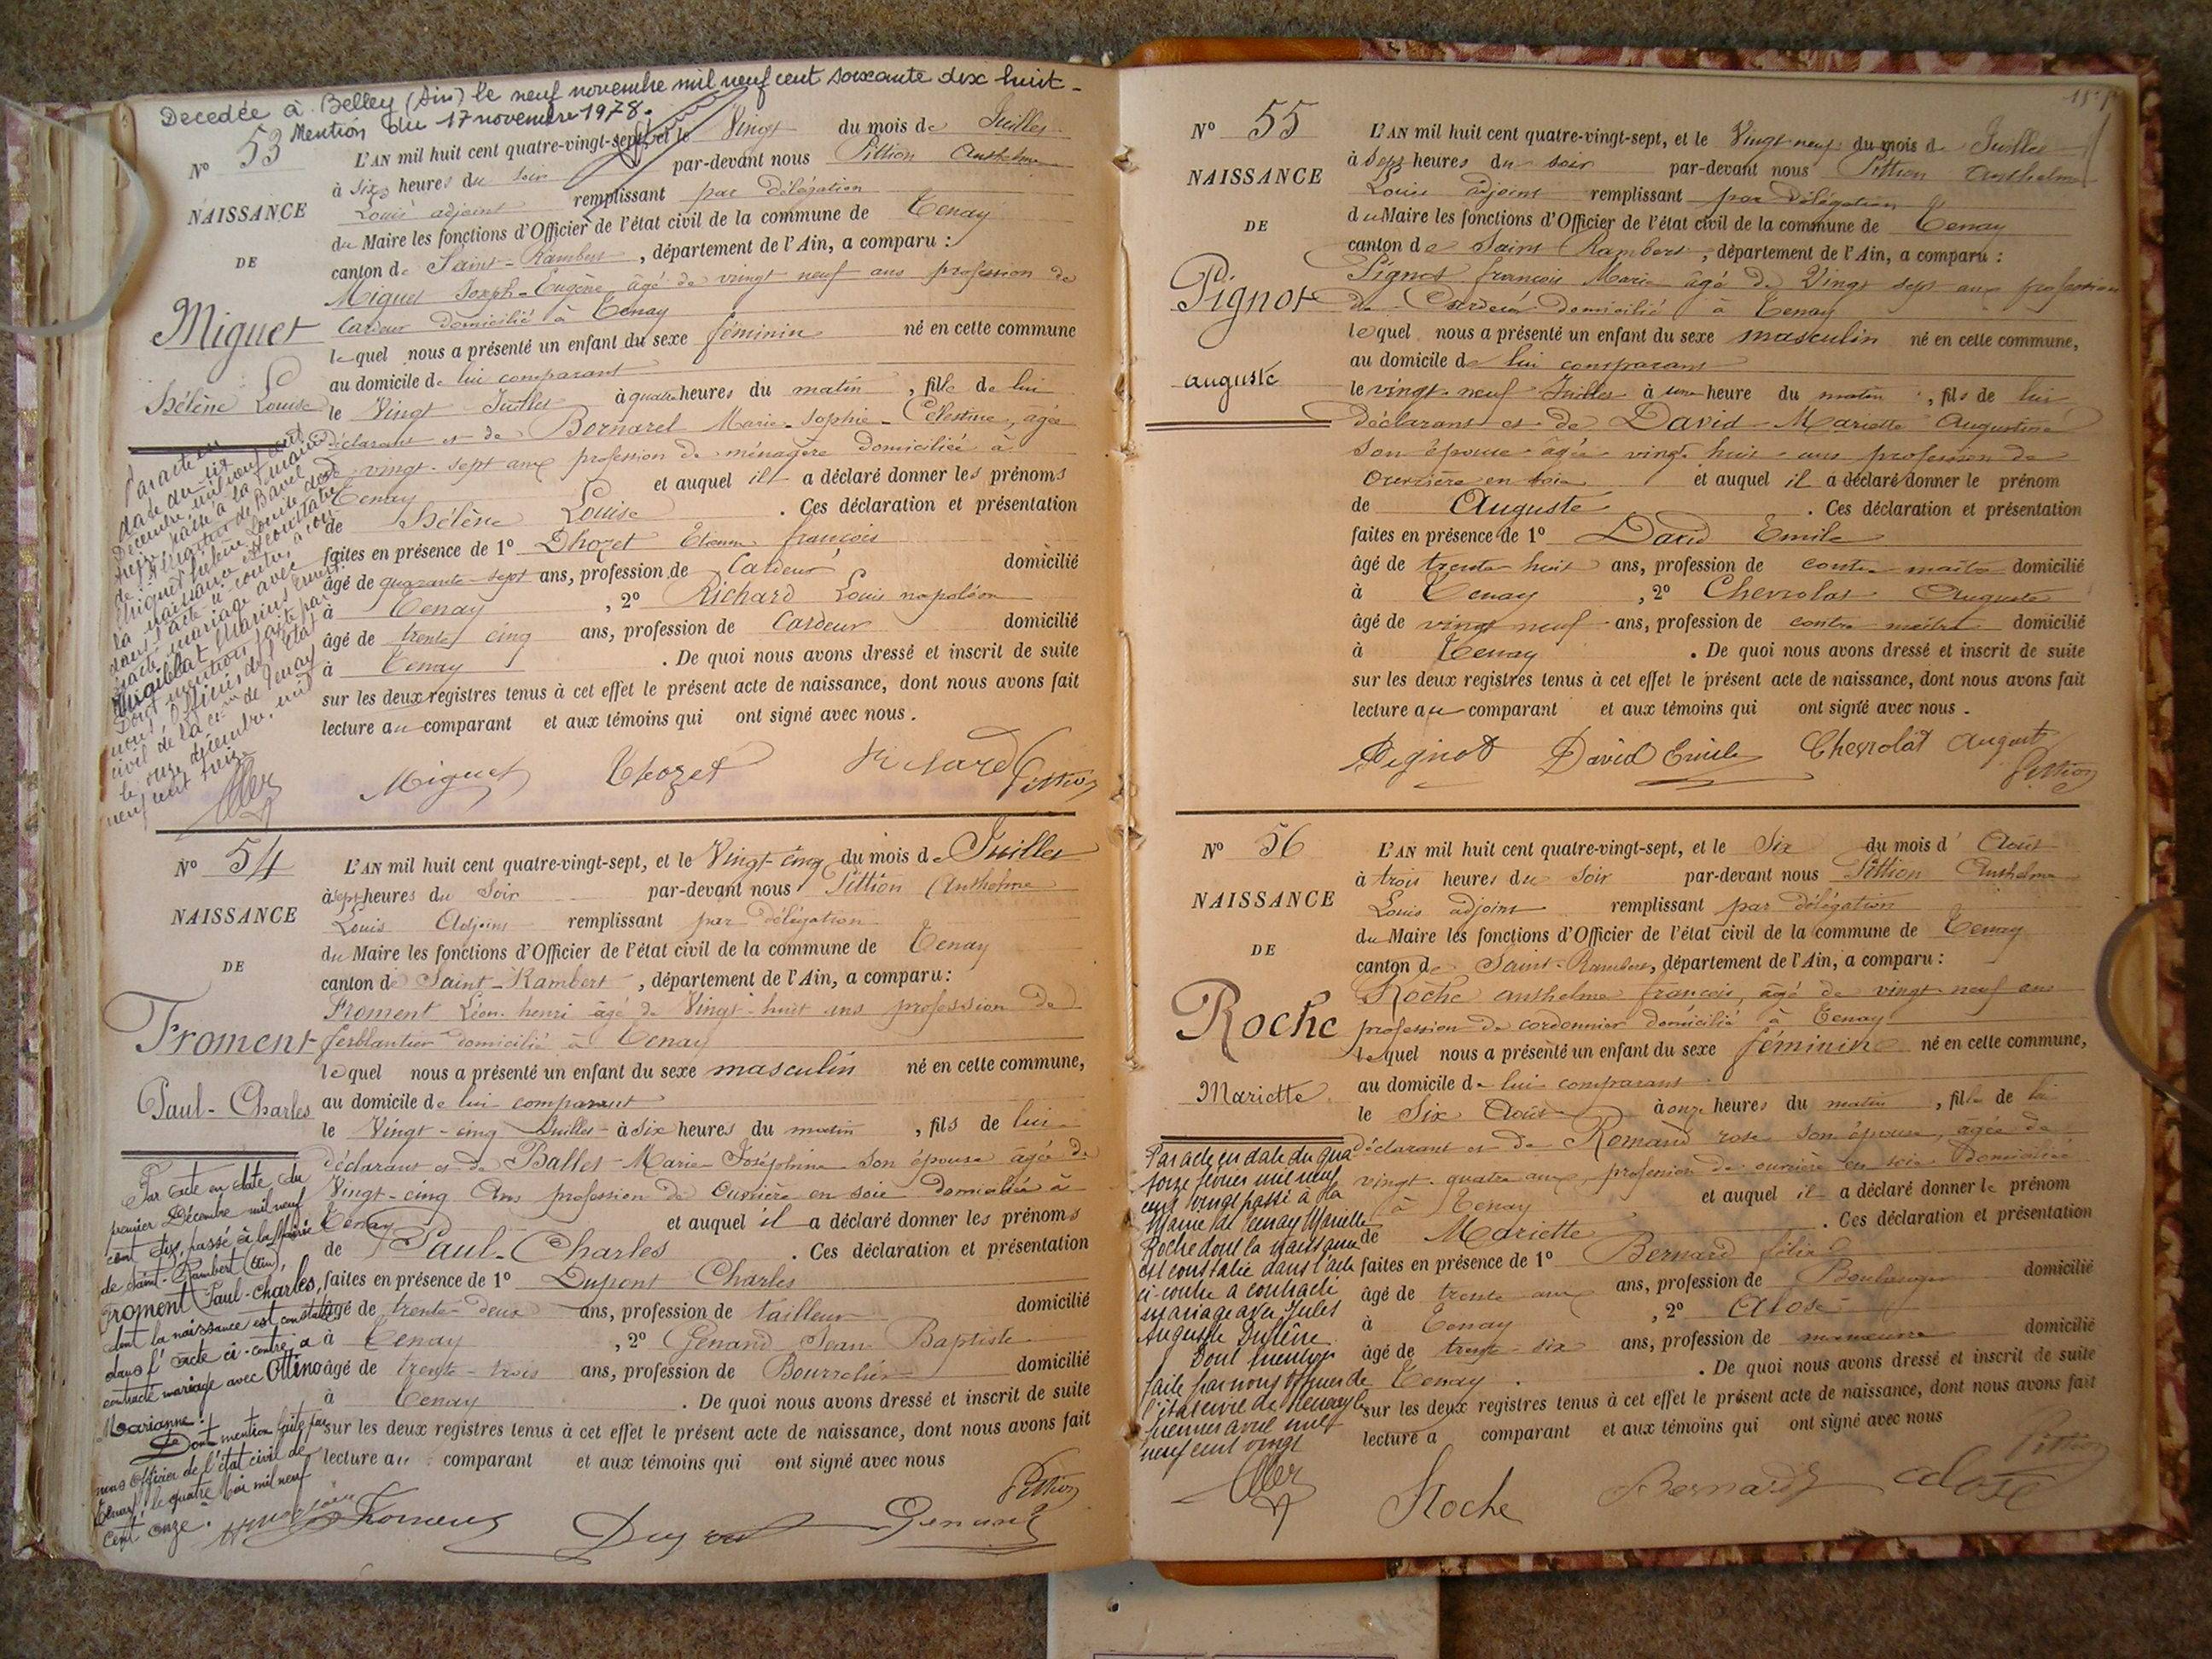 Decedée à Belley (Ain) le neuf novembre mil neuf cent soixante dix huit -
Mention du 17 novembre 1978.
N° 53
NAISSANCE
DE
Miguet
Hélène Louise
L'AN mil huit cent quatre-vingt-sept, et le Vingt du mois de Juillet
à six heures du soir par-devant nous Pittion Anthelme
Louis adjoint remplissant par délégation
du Maire les fonctions d'Officier de l'état civil de la commune de Tenay
canton de Saint-Rambert, département de l'Ain, a comparu :
Miguet Joseph-Eugène âgé de vingt neuf ans profession de
Cardeur domicilié à Tenay
lequel nous a présenté un enfant du sexe féminin né en cette commune
au domicile de lui comparant
le Vingt Juillet à quatre heures du matin, fille de lui
déclarant et de Bornarel Marie-Sophie-Célestine, agée
de vingt-sept ans profession de ménagère domiciliée à
Tenay et auquel il a déclaré donner les prénoms
de Hélène Louise. Ces déclaration et présentation
faites en présence de 1° Dhozet Etienne françois
âgé de quarante-sept ans, profession de Cardeur domicilié
à Tenay, 2° Richard Louis napoléon
âgé de trente cinq ans, profession de Cardeur domicilié
à Tenay. De quoi nous avons dressé et inscrit de suite
sur les deux registres tenus à cet effet le présent acte de naissance, dont nous avons fait
lecture au comparant et aux témoins qui ont signé avec nous.
Par acte en
date du six
Décembre mil neuf cent
treize, passé à la mairie
de
Miguet hélène Louise dont
la naissance est constatée
dans l'acte ci-contre, a con-
tracté mariage avec
Marius
Dont mention faite par
nous, Officier de l'Etat
civil de la cne de Tenay
le onze décembre mil
neuf cent treize
Miguet Dhozet Richard Pittion
N° 54
NAISSANCE
DE
Froment
Paul-Charles
L'AN mil huit cent quatre-vingt-sept, et le Vingt-cinq du mois de Juillet
à sept heures du Soir par-devant nous Pittion Anthelme
Louis Adjoint remplissant par délégation
du Maire les fonctions d'Officier de l'état civil de la commune de Tenay
canton de Saint-Rambert, département de l'Ain, a comparu :
Froment Léon-henri âgé de Vingt-huit ans profession de
ferblantier domicilié à Tenay
lequel nous a présenté un enfant du sexe masculin né en cette commune,
au domicile de lui comparant
le Vingt-cinq Juillet à six heures du matin, fils de lui
déclarant et de Ballet Marie Joséphine son épouse âgée de
Vingt-cinq Ans profession de Ouvrière en soie domiciliée à
Tenay et auquel il a déclaré donner les prénoms
de Paul-Charles. Ces déclaration et présentation
faites en présence de 1° Dupont Charles
âgé de trente deux ans, profession de tailleur domicilié
à Tenay, 2° Genand Jean Baptiste
âgé de trente-trois ans, profession de Bourrelier domicilié
à Tenay. De quoi nous avons dressé et inscrit de suite
sur les deux registres tenus à cet effet le présent acte de naissance, dont nous avons fait
lecture au comparant et aux témoins qui ont signé avec nous
Par acte en date du
premier Décembre mil neuf
cent dix, passé à la Mairie
de Saint-Rambert (Ain),
Froment Paul-Charles,
dont la naissance est constatée
dans l'acte ci-contre, a
contracté mariage avec Ottino
Marianne.
Dont mention faite par
nous Officier de l'état civil de
Tenay, le quatre Mai mil neuf
cent onze.
Froment Dupont Genand Pittion
N° 55
NAISSANCE
DE
Pignot
auguste
L'AN mil huit cent quatre-vingt-sept, et le Vingt-neuf du mois de Juillet
à sept heures du soir par-devant nous Pittion Anthelme
Louis adjoint remplissant par Délégation
du Maire les fonctions d'Officier de l'état civil de la commune de Tenay
canton de Saint Rambert, département de l'Ain, a comparu :
Pignot françois Marie âgé de Vingt sept ans profession
de Cardeur domicilié à Tenay
lequel nous a présenté un enfant du sexe masculin né en cette commune,
au domicile de lui comparant
le vingt-neuf Juillet à une heure du matin, fils de lui
déclarant et de David Mariette Augustine
son épouse âgée vingt huit ans profession de
Ouvrière en soie et auquel il a déclaré donner le prénom
de Auguste. Ces déclaration et présentation
faites en présence de 1° David Emile
âgé de trente huit ans, profession de contre-maître domicilié
à Tenay, 2° Chevrolat Auguste
âgé de vingt neuf ans, profession de contre maître domicilié
à Tenay. De quoi nous avons dressé et inscrit de suite
sur les deux registres tenus à cet effet le présent acte de naissance, dont nous avons fait
lecture au comparant et aux témoins qui ont signé avec nous.
Pignot David Emile Chevrolat August Pittion
N° 56
NAISSANCE
DE
Roche
Mariette
L'AN mil huit cent quatre-vingt-sept, et le Six du mois d'Août
à trois heures du Soir par-devant nous Pittion Anthelme
Louis adjoint remplissant par délégation
du Maire les fonctions d'Officier de l'état civil de la commune de Tenay
canton de Saint-Rambert, département de l'Ain, a comparu :
Roche anthelme françois, âgé de vingt-neuf ans
profession de cordonnier domicilié à Tenay
lequel nous a présenté un enfant du sexe féminin né en cette commune,
au domicile de lui comparant
le Six Août à onze heures du matin, fille de lui
déclarant et de Romand rose son épouse, agée de
vingt-quatre ans, profession de ouvrière en soie domiciliée
à Tenay et auquel il a déclaré donner le prénom
de Mariette. Ces déclaration et présentation
faites en présence de 1° Bernard félix
âgé de trente ans, profession de Boulanger domicilié
à Tenay, 2° Alose
âgé de trente-six ans, profession de manœuvre domicilié
Tenay. De quoi nous avons dressé et inscrit de suite
sur les deux registres tenus à cet effet le présent acte de naissance, dont nous avons fait
lecture a comparant et aux témoins qui ont signé avec nous
Par acte en date du qua
torze février mil neuf
cent vingt passé à la
Mairie de Tenay Mariette
Roche dont la naissance
est constatée dans l'acte
ci-contre a contracté
mariage avec Jules
Auguste Dutène.
Dont mention
faite par nous Officier de
l'état civil de Tenay le
premier avril mil
neuf cent vingt
Roche Bernard Alose Pittion